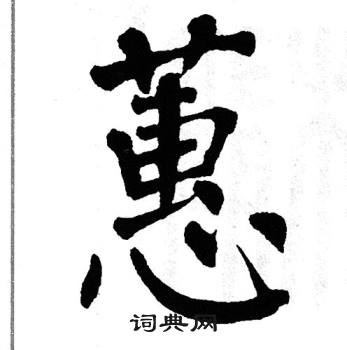 蕙
词典网